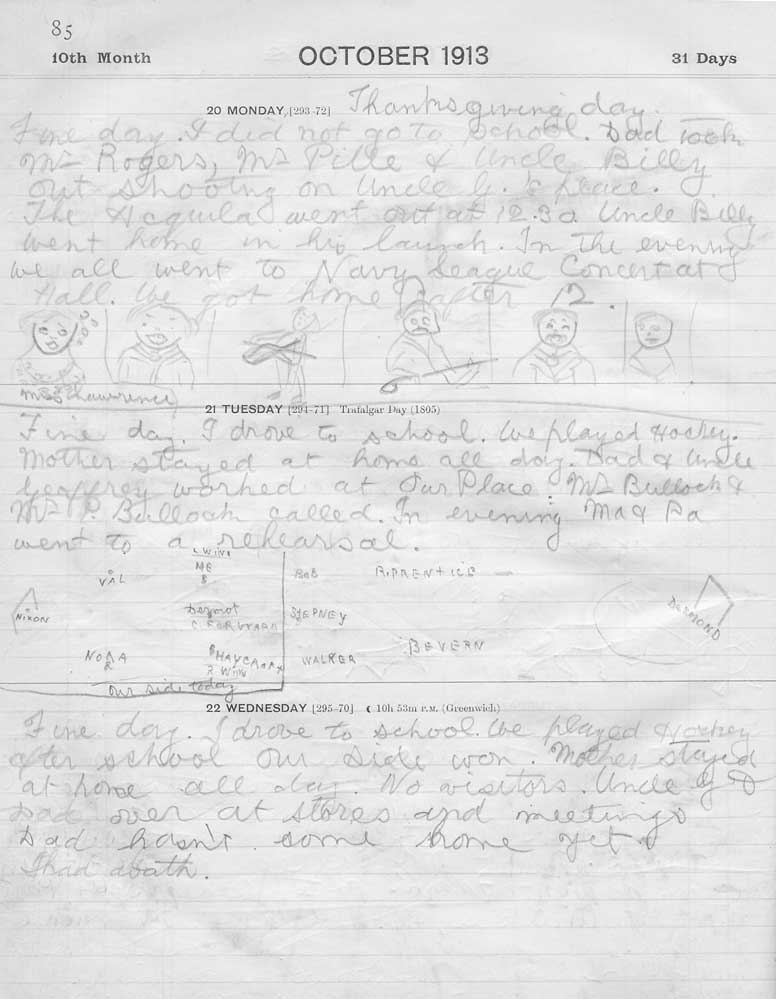 85
10th Month OCTOBER 1913 31 Days
20 MONDAY [293-72] Thanksgiving day.
Fine day. I did not go to school. Dad took
Mr Rogers, Mr Pille & Uncle Billy
out shooting on Uncle G.'s place.
The Aquila went out at 12.30. Uncle Billy
went home in his launch. In the evening
we all went to Navy League Concert at
Hall. We got home after 12.
Miss Lawrence
21 TUESDAY [294-71] Trafalgar Day (1805)
Fine day. I drove to school. We played Hockey.
Mother stayed at home all day. Dad & Uncle
Geoffrey worked at Our Place. Mr Bullock &
Mr P. Bullock called. In evening Ma & Pa
went to a rehearsal.
L WING
VAL ME BOB R. PRENTICE
NIXON C. FORWARD STEPNEY DERMOND
NORA R WING WALKER BEVERN
our side today
22 WEDNESDAY [295-70] 10h 53m P.M. (Greenwich)
Fine day. I drove to school. We played Hockey
after school our side won. Mother stayed
at home all day. No visitors. Uncle G &
Dad over at stores and meetings
Dad hasn't come home yet.
I had a bath.